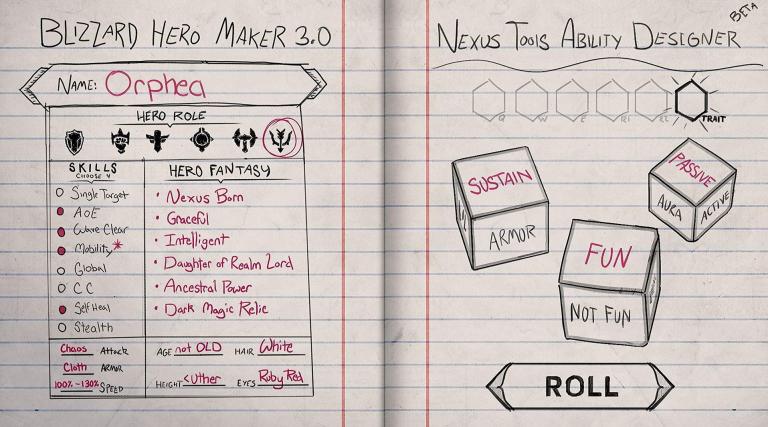 BLIZZARD HERO MAKER 3.0
NAME: Orphea
HERO ROLE
SKILLS
CHOOSE 4
Single Target
AoE
Wave Clear
Mobility*
Global
CC
Self Heal
Stealth
HERO FANTASY
• Nexus Born
• Graceful
• Intelligent
• Daughter of Realm Lord
• Ancestral Power
• Dark Magic Relic
Chaos Attack
Cloth ARMOR
100%-130% SPEED
AGE not OLD HAIR White
HEIGHT <uther EYES Ruby Red
NEXUS TOOLS ABILITY DESIGNER
BETA
Q W E R1 R2 TRAIT
SUSTAIN
ARMOR
PASSIVE
AURA ACTIVE
FUN
NOT FUN
ROLL